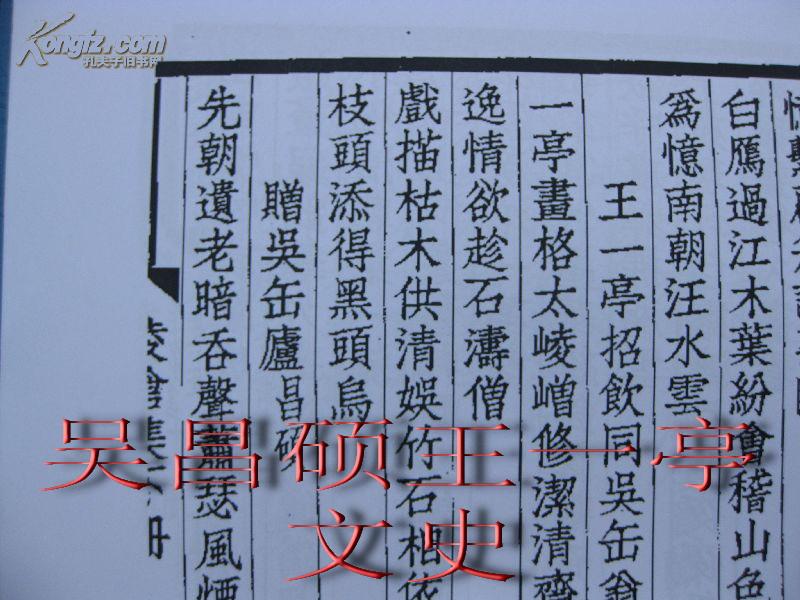 Kongfz.com
孔夫子旧书网
白鴈過江木葉紛會稽山色
爲憶南朝汪水雲
王一亭招飲同吳缶翁
一亭畫格太崚嶒修潔清齋
逸情欲趁石濤僧
戲描枯木供清娛竹石相依
枝頭添得黑頭烏
贈吳缶廬昌碩
先朝遺老暗吞聲蕭瑟風煙
吴昌硕王一亭
文史